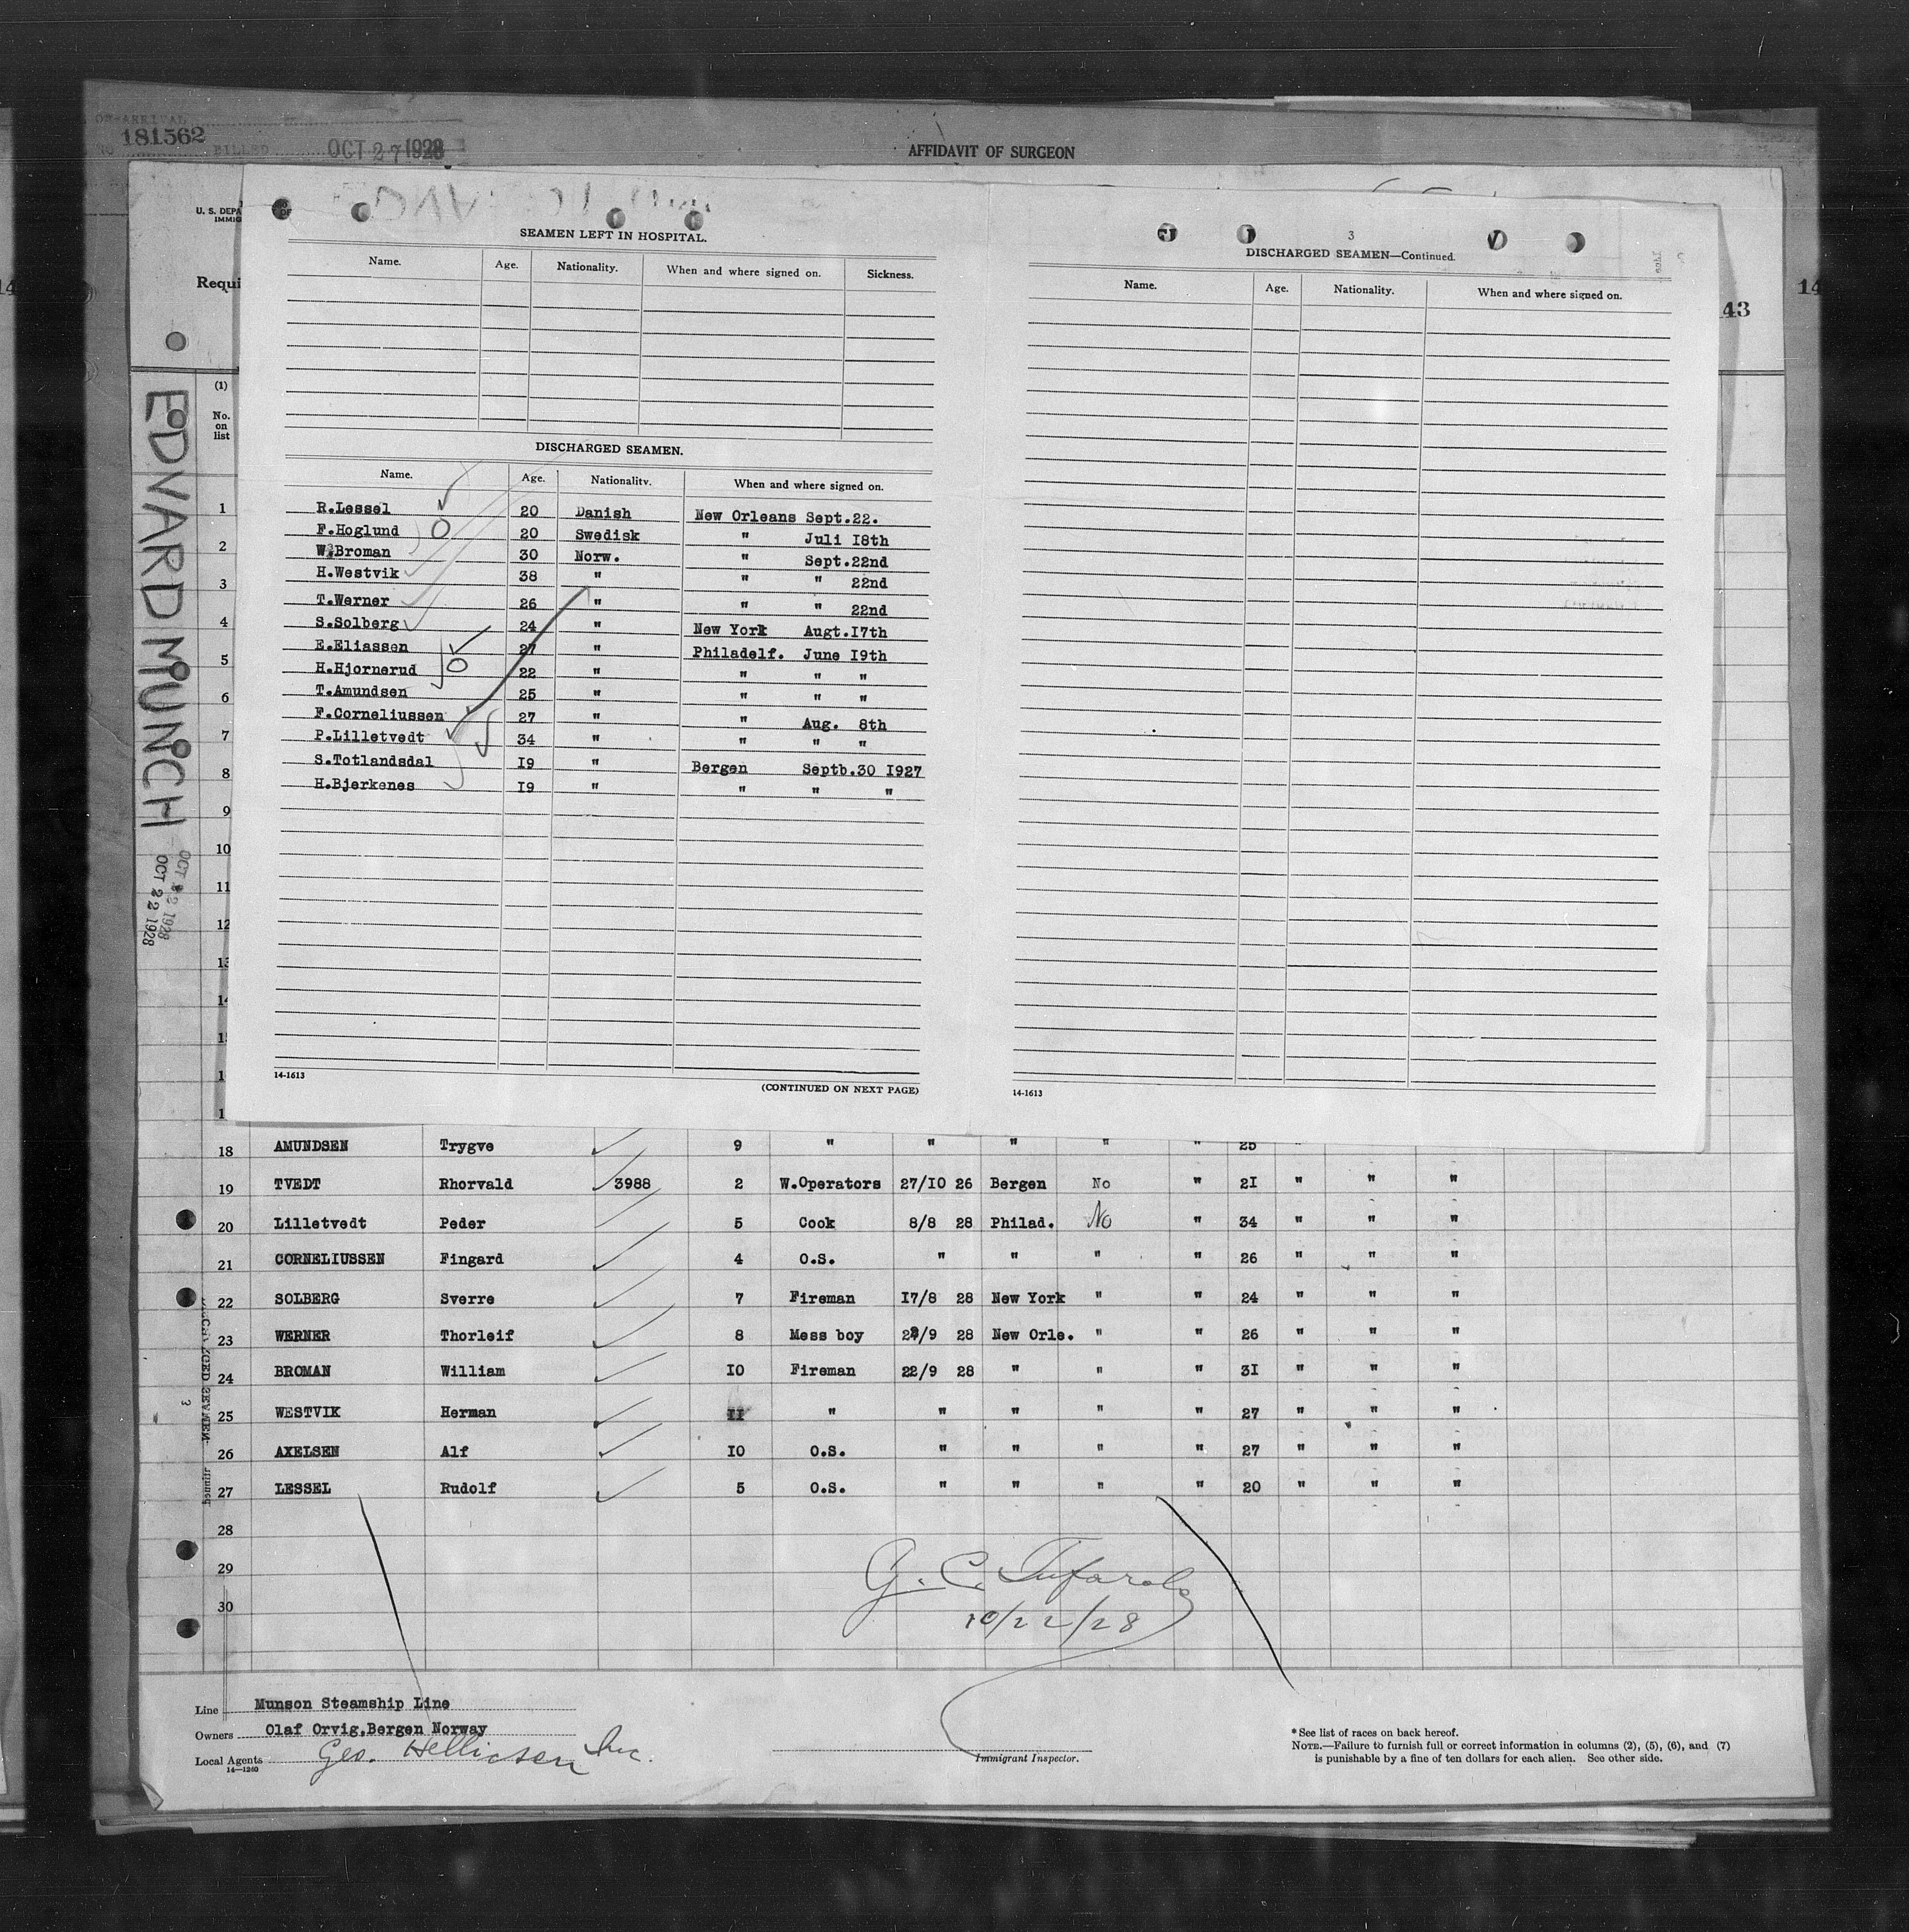 181562
FILED OCT 27 1928
AFFIDAVIT OF SURGEON
U. S. DEPA
IMMIG
Requi
43
14
EDVARD MUNCH
OCT 22 1928
OCT 22 1928
(1)
No. on list
SEAMEN LEFT IN HOSPITAL.
Name. Age. Nationality. When and where signed on. Sickness.
DISCHARGED SEAMEN.
Name. Age. Nationality. When and where signed on.
R.Lessel 20 Danish New Orleans Sept.22.
F.Hoglund 20 Swedisk " Juli I8th
W.Broman 30 Norw. " Sept.22nd
H.Westvik 38 " " " 22nd
T.Werner 26 " " " 22nd
S.Solberg 24 " New York Augt.I7th
E.Eliassen 27 " Philadelf. June I9th
H.Hjornerud 22 " " " "
T.Amundsen 25 " " " "
F.Corneliussen 27 " " Aug. 8th
P.Lilletvedt 34 " " " "
S.Totlandsdal I9 " Bergen Septb.30 I927
H.Bjerkenes I9 " " " "
14-1613
(CONTINUED ON NEXT PAGE)
3
DISCHARGED SEAMEN—Continued.
Name. Age. Nationality. When and where signed on.
14-1613
1
2
3
4
5
6
7
8
9
10
11
12
13
14
18 AMUNDSEN Trygve 9 " " " " " 25
19 TVEDT Rhorvald 3988 2 W.Operators 27/I0 26 Bergen No " 2I " " "
20 Lilletvedt Peder 5 Cook 8/8 28 Philad. No " 34 " " "
21 CORNELIUSSEN Fingard 4 O.S. " " " " 26 " " "
22 SOLBERG Sverre 7 Fireman I7/8 28 New York " " 24 " " "
23 WERNER Thorleif 8 Mess boy 22/9 28 New Orle. " " 26 " " "
24 BROMAN William I0 Fireman 22/9 28 " " " 3I " " "
25 WESTVIK Herman II " " " " " 27 " " "
26 AXELSEN Alf I0 O.S. " " " " 27 " " "
27 LESSEL Rudolf 5 O.S. " " " " 20 " " "
28
29
30
10/22/28
Line Munson Steamship Line
Owners Olaf Orvig,Bergen Norway
Local Agents Geo. Inc.
14—1240
Immigrant Inspector.
* See list of races on back hereof.
NOTE.—Failure to furnish full or correct information in columns (2), (5), (6), and (7)
is punishable by a fine of ten dollars for each alien. See other side.